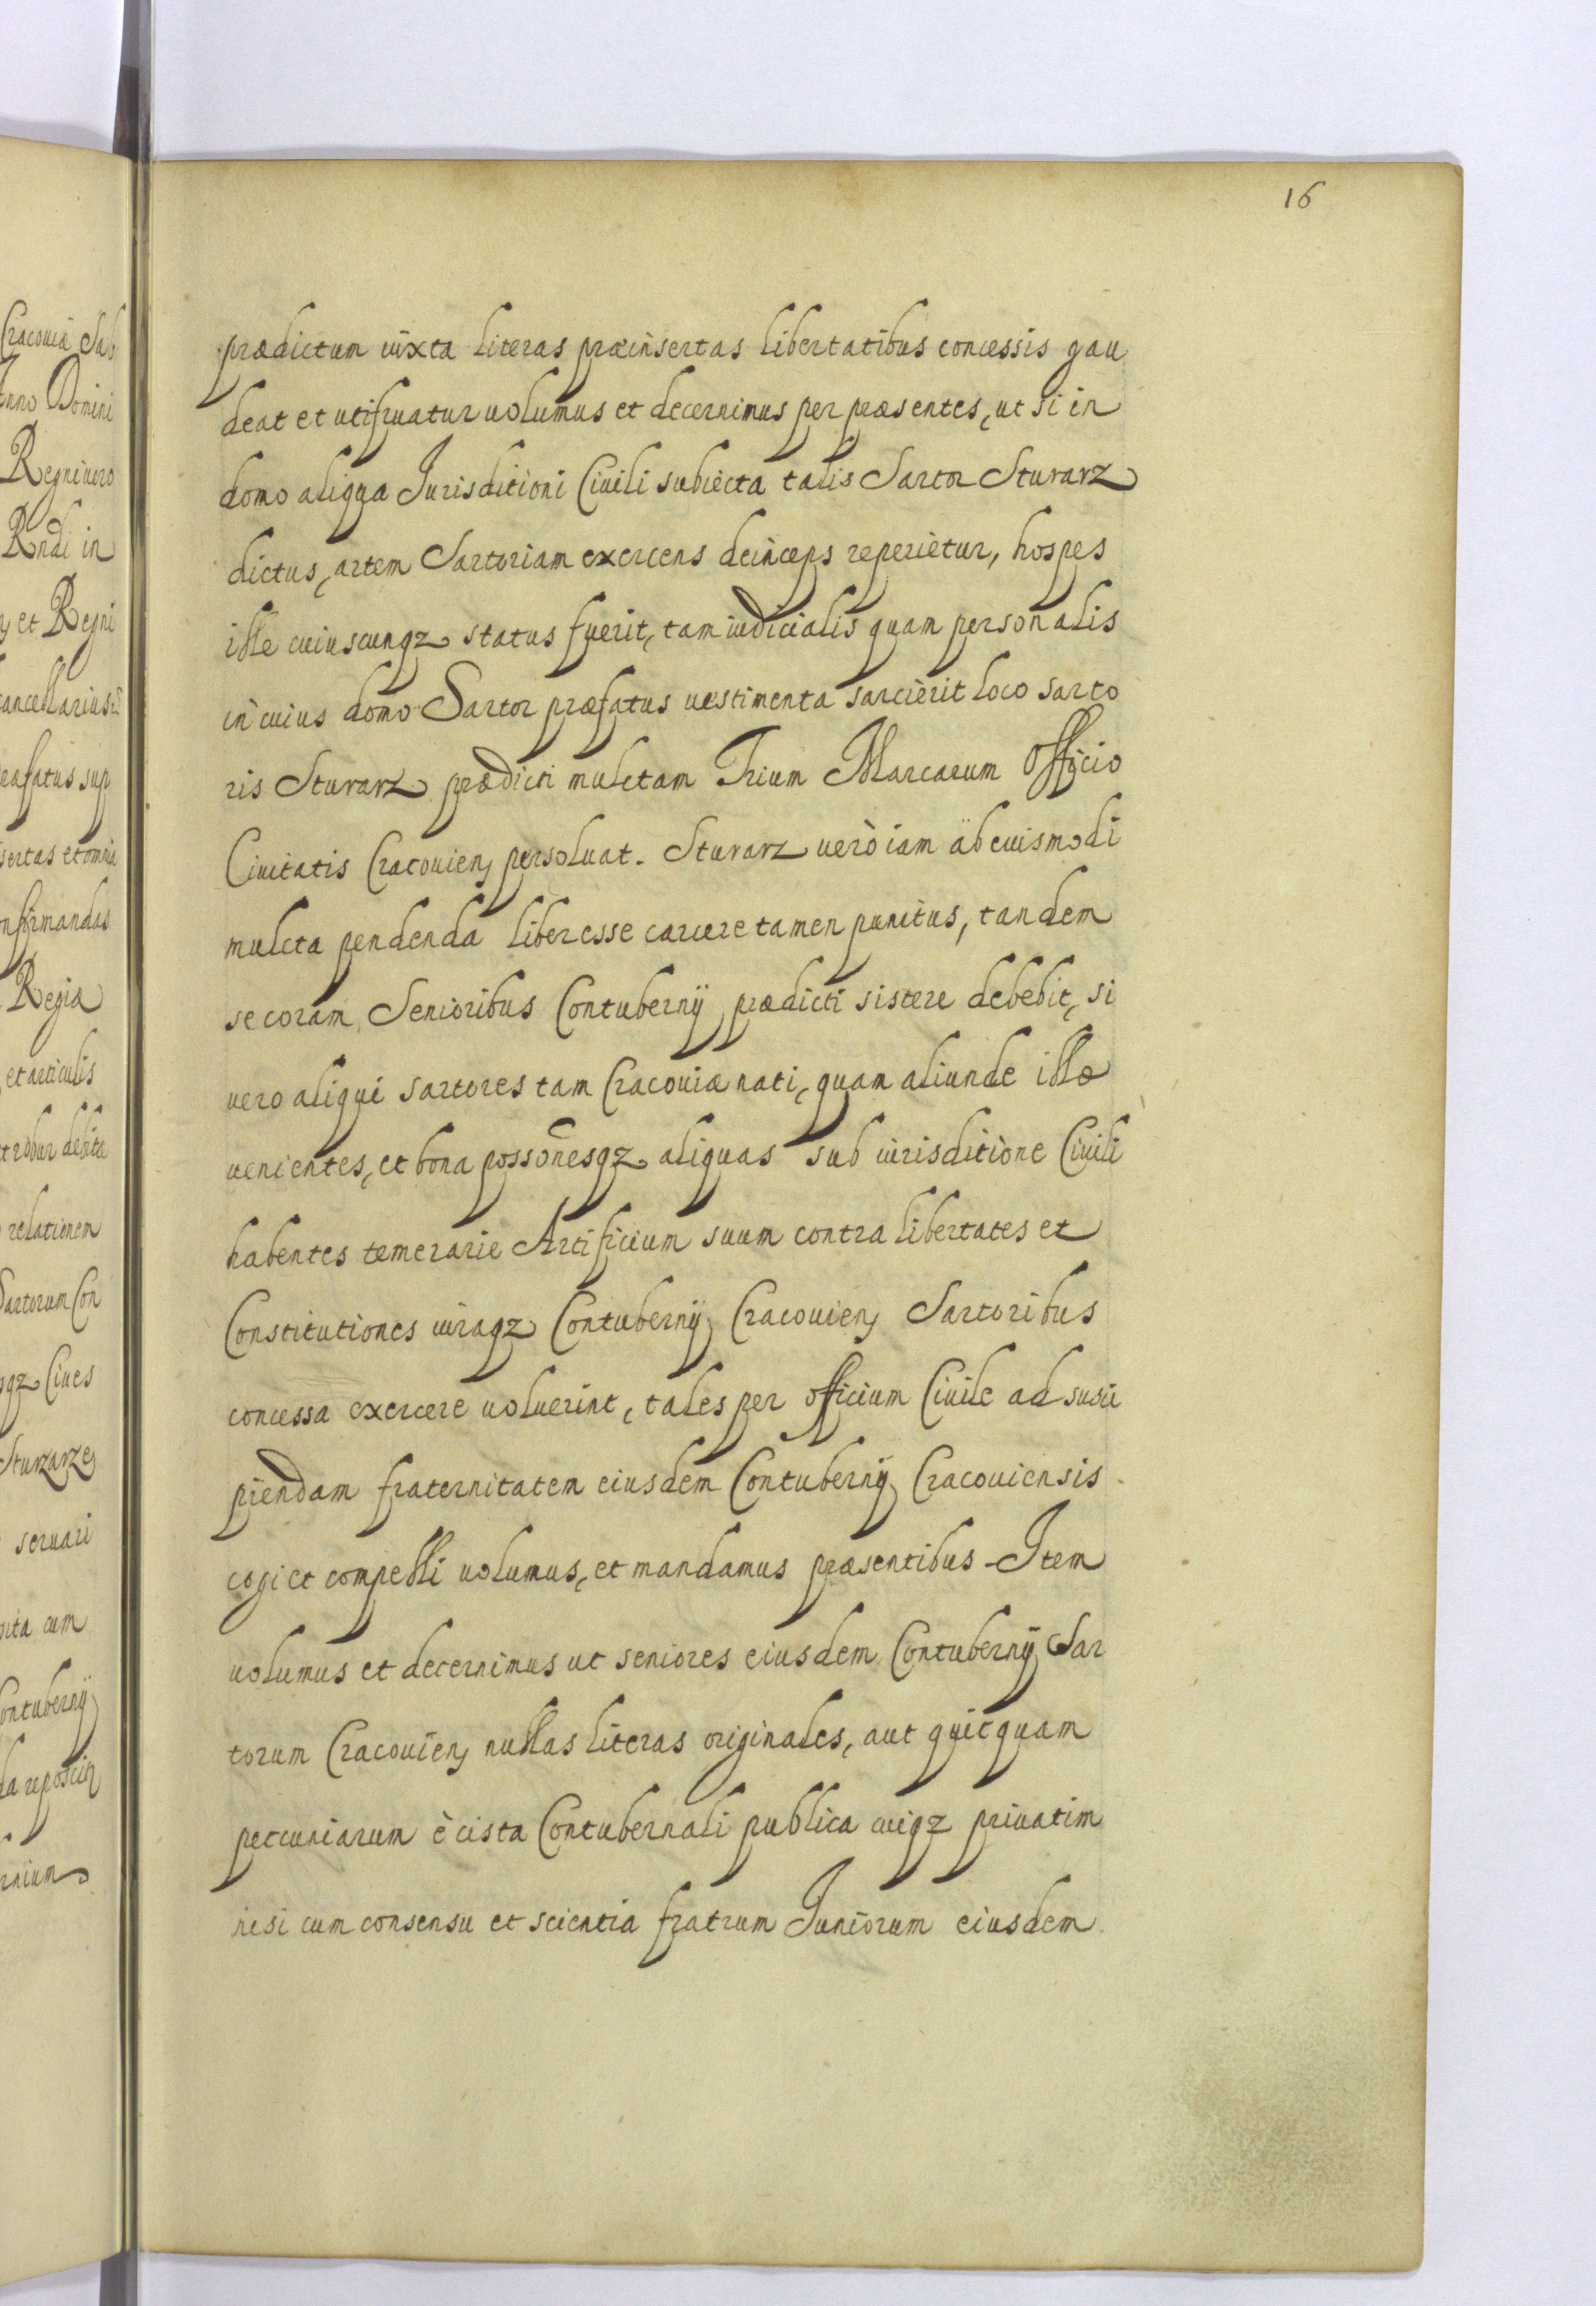 16
prædictum iuxta literas præinsertas libertatibus concessis gau
deat et utifruatur uolumus et decernimus per præsentes, ut si in
domo aliqua Jurisditioni Ciuili subiecta talis Sartor Sturarz
dictus, artem Sartoriam exercens deinceps reperietur, hospes
ille cuiuscunqz status fuerit, tam iudicialis quam personalis
in cuius domo Sartor præfatus uestimenta sarcierit loco sarto
ris Sturarz prædicti mulctam Trium Marcarum Officio
Ciuitatis Cracouien persoluat. Sturarz uerò iam ab euismodi
mulcta pendenda liber esse carcere tamen punitus, tandem
se coram Senioribus Contubernij prædicti sistere debebit, si
uero aliqui sartores tam Cracouiæ nati, quam aliunde illo
uenientes, et bona possonesqz aliquas sub iurisditione Ciuili
habentes temerarie Artificium suum contra libertates et
Constitutiones iuraqz Contubernij Cracouien Sartoribus
concessa exercere uoluerint, tales per officium Ciuile ad susci
piendam fraternitatem eiusdem Contubernij Cracouiensis
cogi et compelli uolumus, et mandamus præsentibus - Item
uolumus et decernimus ut seniores eiusdem Contubernij Sar
torum Cracouien nullas literas originales, aut quitquam
peccuniarum è cista Contubernali publica cuiqz priuatim
nisi cum consensu et scientia fratrum Juniorum eiusdem